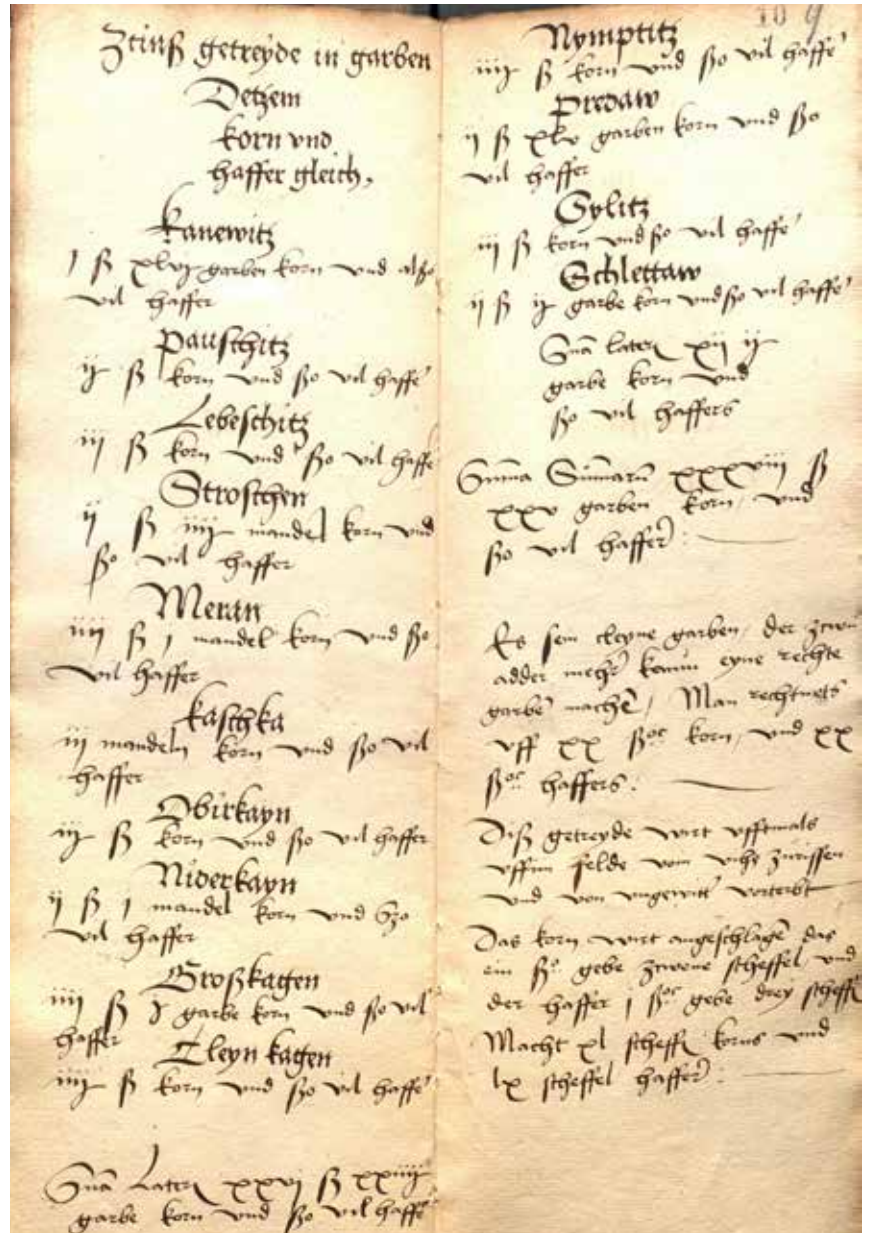 Ztinß getreyde in garben
Detzem
korn vnd
haffer gleich,
Kanewitz
j ß xlvj garben korn vnd also
vil haffer
Pauschitz
ij ß korn vnd ßo vil haffe'
Lebeschitz
iij ß korn vnd ßo vil haffe'
Stroschen
ij ß iiij mandel korn vnd
ßo vil haffer
Meran
iiij ß j mandel korn vnd ßo
vil haffer
Kaschka
iij mandeln korn vnd ßo vil
haffer
Obirkayn
iij ß korn vnd ßo vil haffer
Niderkayn
ij ß j mandel korn vnd Szo
vil haffer
Großkagen
iiij ß garbe korn vnd ßo vil
haffer
Cleyn kagen
iiij ß korn vnd ßo vil haffe'
Suma Laters xxvj ß xxiiij
garbe korn vnd ßo vil haffe'
10 9
Nymptitz
iiij ß korn vnd ßo vil haffe'
Predaw
ij ß xlv garben korn vnd ßo
vil haffer
Sylitz
iij ß korn vnd ßo vil haffe'
Schlettaw
ij ß ij garbe korn vnd ßo vil haffe'
Suma laters xij ij
garbe korn vnd
ßo vil haffers
Summa Sumarum xxxviij ß
xxv garben korn, vnd
ßo vil haffer:
Es sein cleyne garben, der zcwu
adder mehr kaum eyne rechte
garbe machen, Man rechnets
vff xx ßoc korn, vnd xx
ßoc haffers:
Diß getreyde wirt vfftmals
vffim felde vom vihe zurissen
vnd von vngewitt' vorterbt
Das korn wirt angeschlagen das
ein ßo gebe zcwene scheffel vnd
der haffer j ßoc gebe drey scheff
Macht xl scheff korns vnd
lx scheffel haffer: